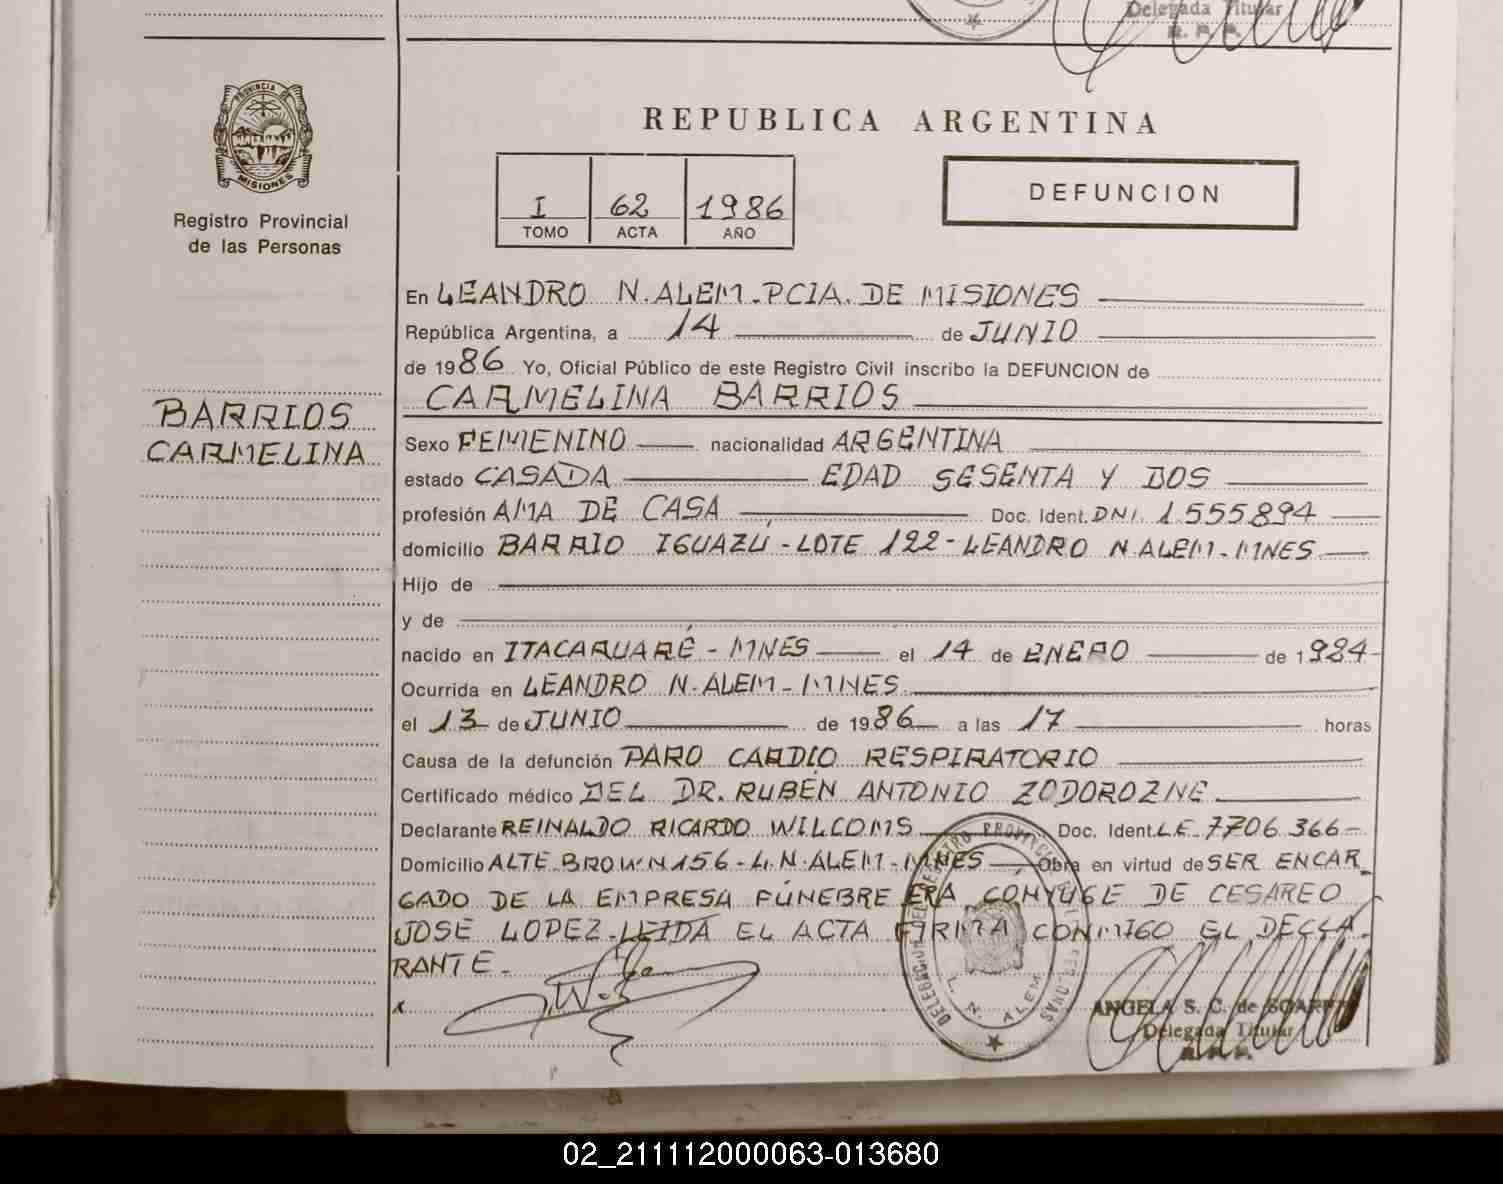 Delegada Titular
R. P. P.
PROVINCIA DE
MISIONES
Registro Provincial
de las Personas
REPUBLICA ARGENTINA
I 62 1986
TOMO ACTA AÑO
DEFUNCION
En LEANDRO N. ALEM - PCIA. DE MISIONES
República Argentina, a 14 de JUNIO
de 1986 Yo, Oficial Público de este Registro Civil inscribo la DEFUNCION de
CARMELINA BARRIOS
BARRIOS
CARMELINA
Sexo FEMENINO nacionalidad ARGENTINA
estado CASADA EDAD SESENTA Y DOS
profesión AMA DE CASA Doc. Ident. DNI. 1.555894
domicilio BARRIO IGUAZÚ - LOTE 122 - LEANDRO N. ALEM - MNES
Hijo de
y de
nacido en ITACARUARÉ - MNES el 14 de ENERO de 1924
Ocurrida en LEANDRO N. ALEM - MNES
el 13 de JUNIO de 1986 a las 17 horas
Causa de la defunción PARO CARDIO RESPIRATORIO
Certificado médico DEL DR. RUBÉN ANTONIO ZODOROZNE
Declarante REINALDO RICARDO WILCOMS Doc. Ident. L.E. 7706.366
Domicilio ALTE. BROWN 156 - L. N. ALEM - MNES Obra en virtud de SER ENCAR
GADO DE LA EMPRESA FÚNEBRE ERA CONYUGE DE CESAREO
JOSÉ LOPEZ. LEIDA EL ACTA FIRMA CONMIGO EL DECLA
RANTE.
x
L. N. ALEM
ANGELA S. C. de
Delegada Titular
02_211112000063-013680